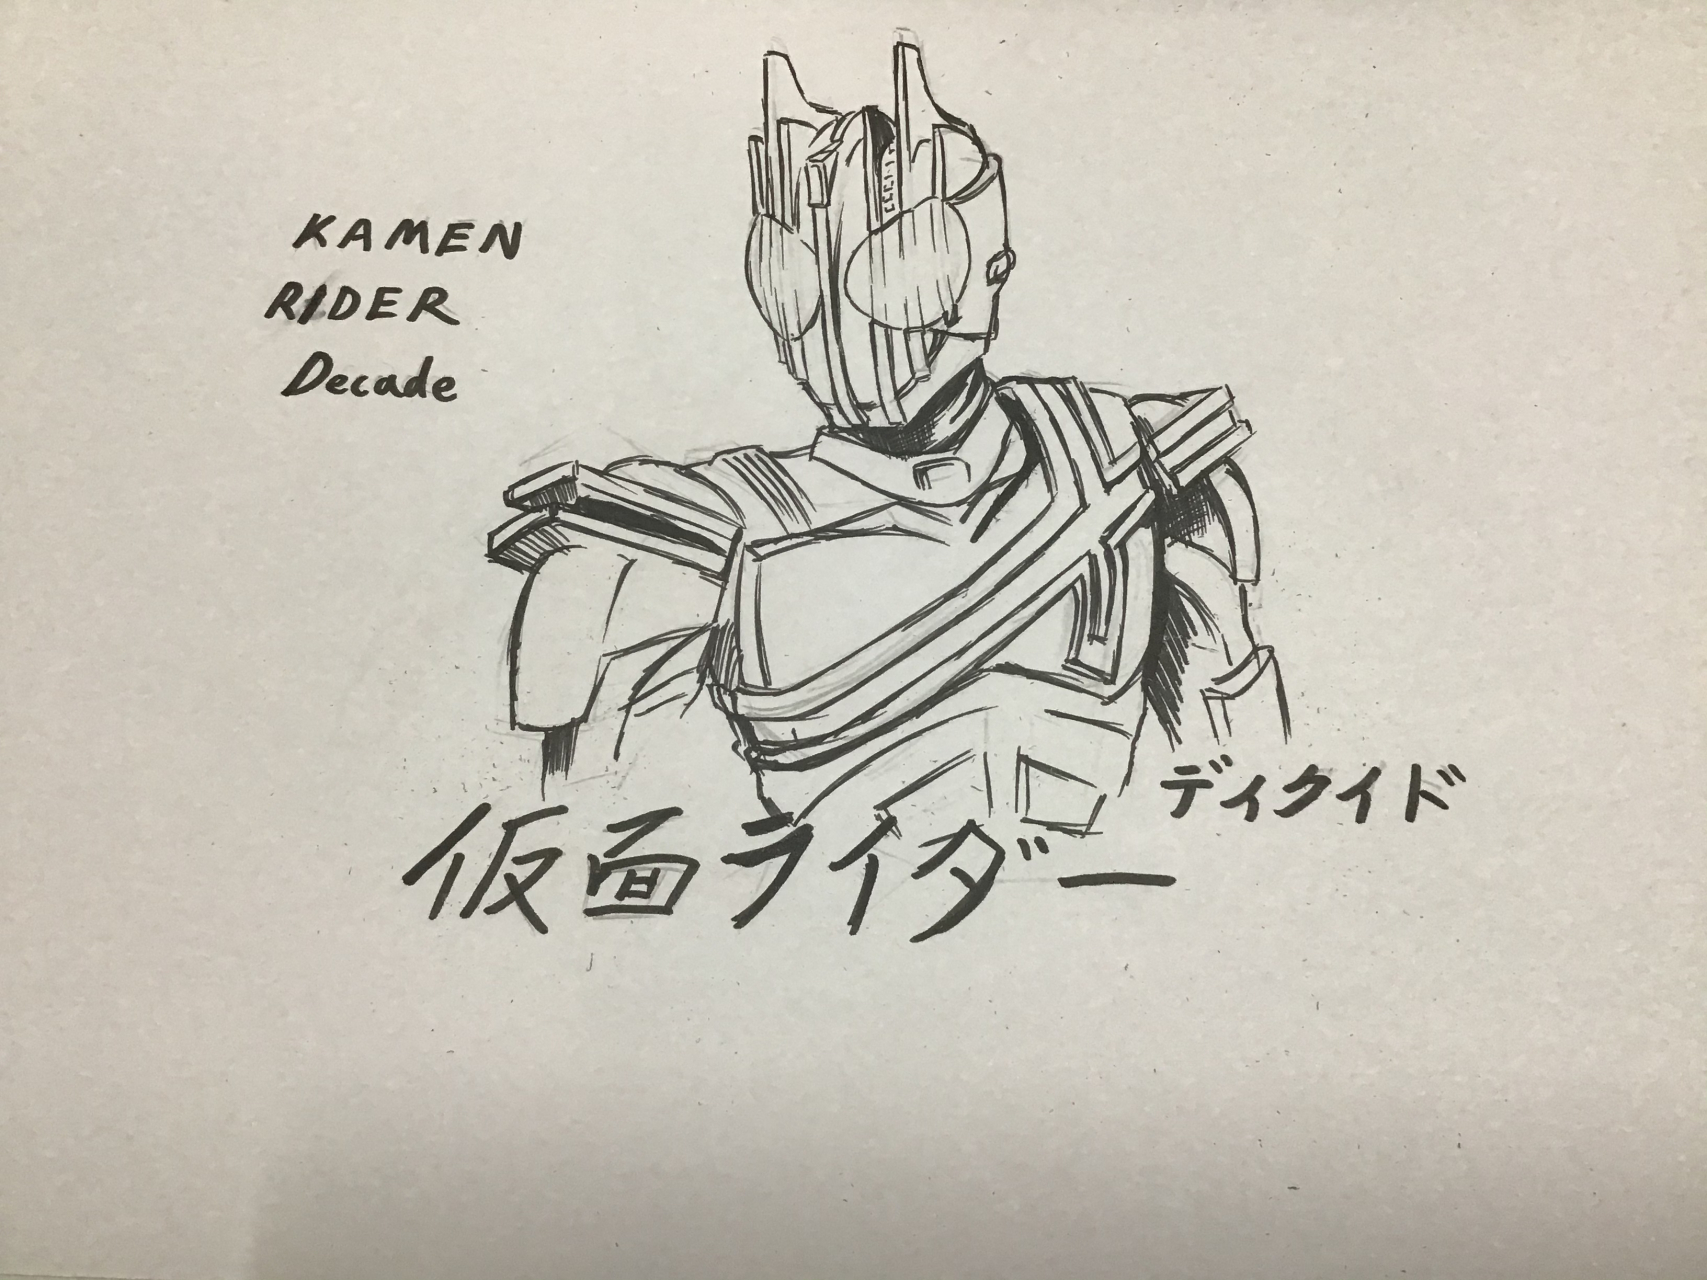 KAMEN
RIDER
Decade
ディクイド
仮面ライダー